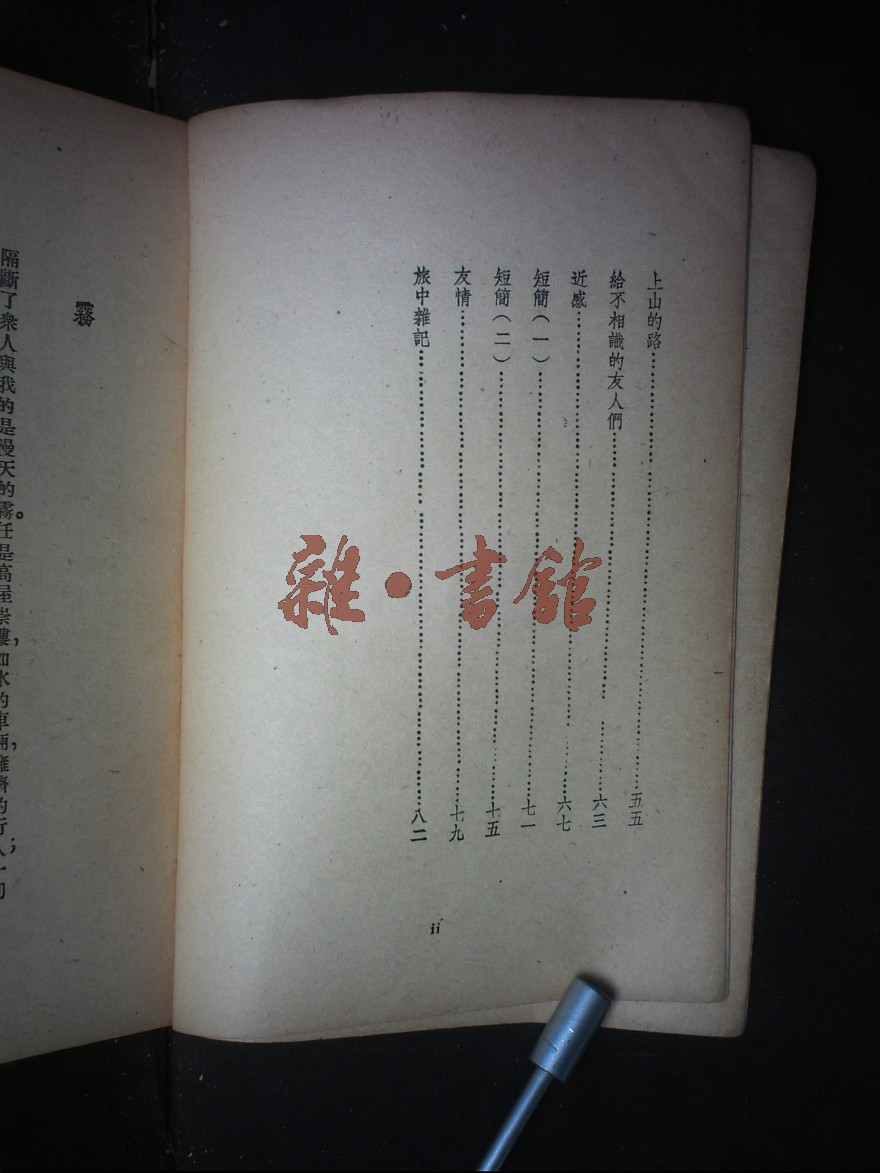 上山的路……五五
給不相識的友人們……六三
近感……六七
短簡(一)……七一
短簡(二)……十五
友情……十九
旅中雜記……八二
ii
雜·書館
霧
隔斷了衆人與我的是漫天的霧。任是高屋崇樓,如水的車輛,擁擠的行人;一切